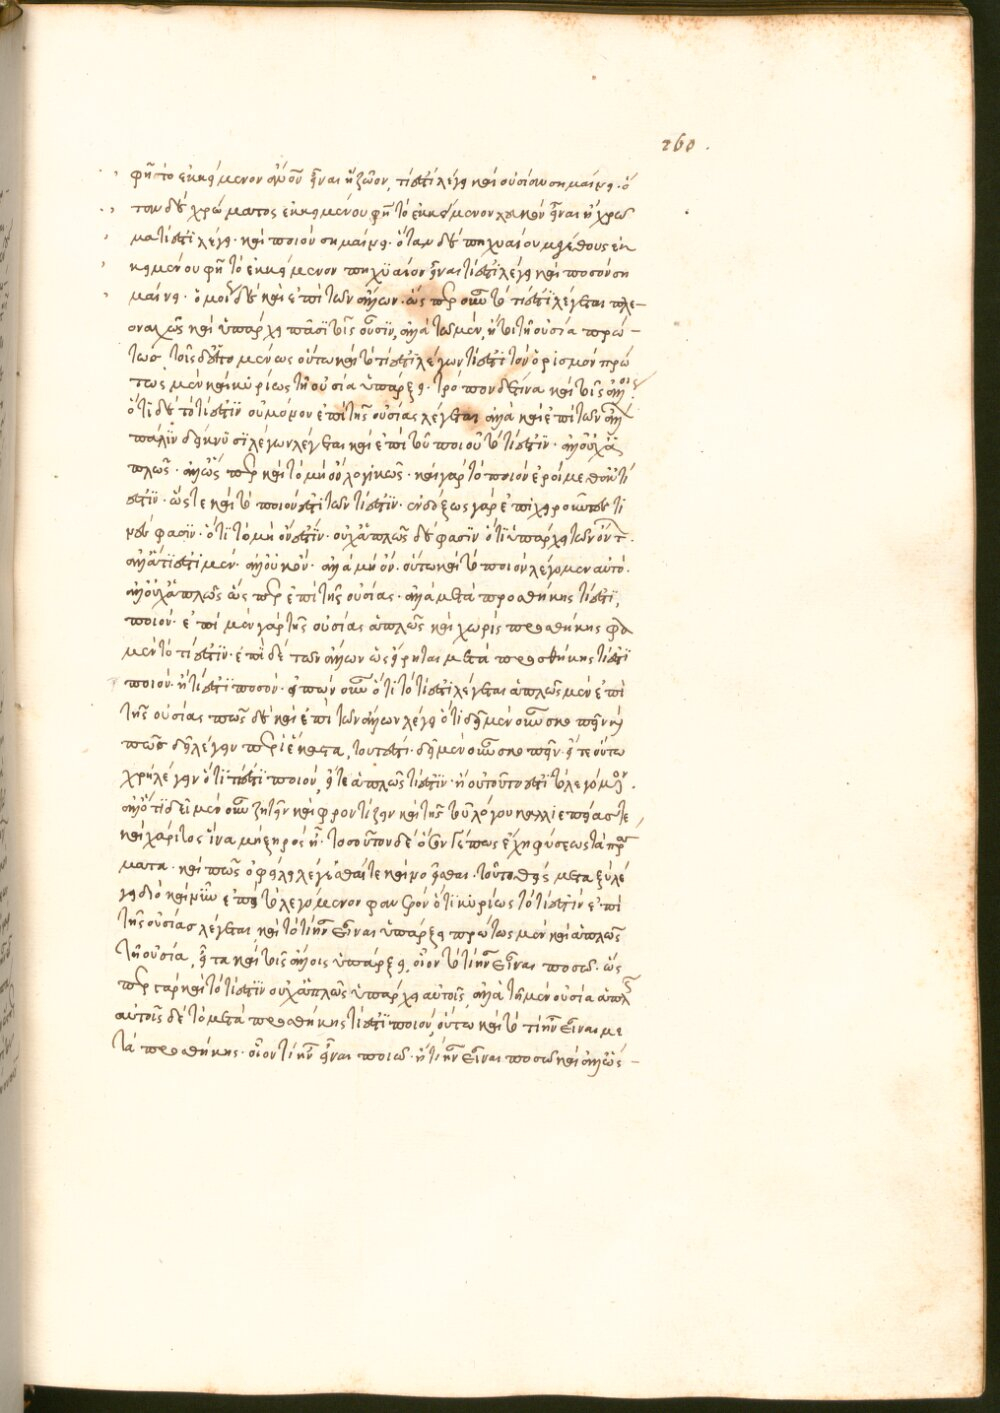 260.
φῆ τὸ ἐκκείμενον ἄνον εἶναι ἢ ζῶον, τί ἐστι λέγει καὶ οὐσίαν σημαίνει. ὅ
ταν δὲ χρώματος ἐκκειμένου φῆ τὸ ἐκκείμενον λευκὸν εἶναι ἢ χρῶ
μα τί ἐστι λέγει. καὶ ποιὸν σημαίνει. ὅταν δὲ πηχυαίου μεγέθους ἐκ
κειμένου φῆ τὸ ἐκκείμενον πηχυαῖον εἶναι τί ἐστι λέγει καὶ ποσὸν ση
μαίνει. ὁμοίως δὲ καὶ ἐπὶ τῶν ἄλλων. ὥσπερ οὖν τὸ τί ἐστι λέγεται πλε-
οναχῶς καὶ ὑπάρχει πᾶσι τοῖς οὖσιν, ἀλλὰ τῶ μὲν, ἤτοι τῆ οὐσία πρώ-
τως τοῖς δ' ἑπομένως οὕτω καὶ τὸ τί ἐστι λέγων τί ἐστι τὸν ὁρισμὸν πρώ
τως μὲν καὶ κυρίως τῆ οὐσία ὑπάρξει. τρόπον δέ τινα καὶ τοῖς ἄλλοις
ὅτι δὲ τὸ τί ἐστιν οὐ μόνον ἐπὶ τῆς οὐσίας λέγεται ἀλλὰ καὶ ἐπὶ τῶν ἄλλ
πάλιν δείκνυσι λέγων λέγεται καὶ ἐπὶ τοῦ ποιοῦ τὸ τί ἐστιν. ἀλλ' οὐχ ἁ
πλῶς. ἀλλ' ὥσπερ καὶ τὸ μὴ ὂν λογικῶς. καὶ γὰρ τὸ ποιὸν ἐροίμεθ' ἂν τί
ἐστιν. ὥστε καὶ τὸ ποιόν ἐστι τῶν τί ἐστιν. ἐνδόξως γὰρ ἐπιχειροῦντές τι
νές φασιν. ὅτι τὸ μὴ ὄν ἐστιν. οὐχ ἁπλῶς δέ φασιν ὅτι ὑπάρχει τῶν ὄντ.
ἀλλ' ὅτι ἐστὶ μὲν. ἀλλ' οὐκ ὂν. ἀλλὰ μὴ ὄν. οὕτω καὶ τὸ ποιὸν λέγομεν αὐτό.
ἀλλ' οὐχ ἁπλῶς ὥσπερ ἐπὶ τῆς οὐσίας. ἀλλὰ μετὰ προσθήκης τί ἐστι,
ποιόν. ἐπὶ μὲν γὰρ τῆς οὐσίας ἁπλῶς καὶ χωρὶς προσθήκης φα
μὲν τὸ τί ἐστιν. ἐπὶ δὲ τῶν ἄλλων ὡς εἴρηται μετὰ προσθήκης τί ἐστι
ποιόν. ἢ τί ἐστι ποσόν. εἰπὼν οὖν ὅτι τὸ τί ἐστι λέγεται ἁπλῶς μὲν ἐπὶ
τῆς οὐσίας πῶς δὲ καὶ ἐπὶ τῶν ἄλλων λέγει ὅτι δεῖ μὲν οὖν σκοπεῖν καὶ
πῶς δεῖ λέγειν περὶ ἕκαστα, τουτέστι. δεῖ μὲν οὖν σκοπεῖν. εἴτε οὕτω
χρὴ λέγειν ὅτι τί ἐστι ποιόν, εἴτε ἁπλῶς τί ἐστιν. ἢ οὐ τοῦτό ἐστι τὸ λεγόμενον.
ἀλλ' ὅτι δεῖ μὲν οὖν ζητεῖν καὶ φροντίζειν καὶ τῆς τοῦ λόγου καλλιεπείας τε
καὶ χάριτος ἵνα μὴ ξηρὸς ἦ. τοσοῦτον δὲ ὅσον γέ πως ἔχει φύσεως τὰ πράγ
ματα. καὶ πῶς ὀφείλει λέγεσθαί τε καὶ νοεῖσθαι. τοῦτο θεὶς μεταξὺ λέ
γει διὸ καὶ νῦν ἐπεὶ τὸ λεγόμενον φανερὸν ὅτι κυρίως τὸ τί ἐστιν ἐπὶ
τῆς οὐσίας λέγεται καὶ τὸ τί ἦν εἶναι ὑπάρξει πρώτως μὲν καὶ ἁπλῶς
τῆ οὐσία, εἶτα καὶ τοῖς ἄλλοις ὑπάρξει, οἷον τὸ τί ἦν εἶναι ποσῶ. ὥς
περ γὰρ καὶ τὸ τί ἐστιν οὐχ ἁπλῶς ὑπάρχει αὐτοῖς, ἀλλὰ τῆ μὲν οὐσία ἁπλῶς
αὐτοῖς δὲ τὸ μετὰ προσθήκης τί ἐστι ποιόν, οὕτω καὶ τὸ τί ἦν εἶναι με
τὰ προσθήκης. οἷον τί ἦν εἶναι ποιῶ. ἢ τί ἦν εἶναι ποσῶ καὶ ἀλλ' ὥς-